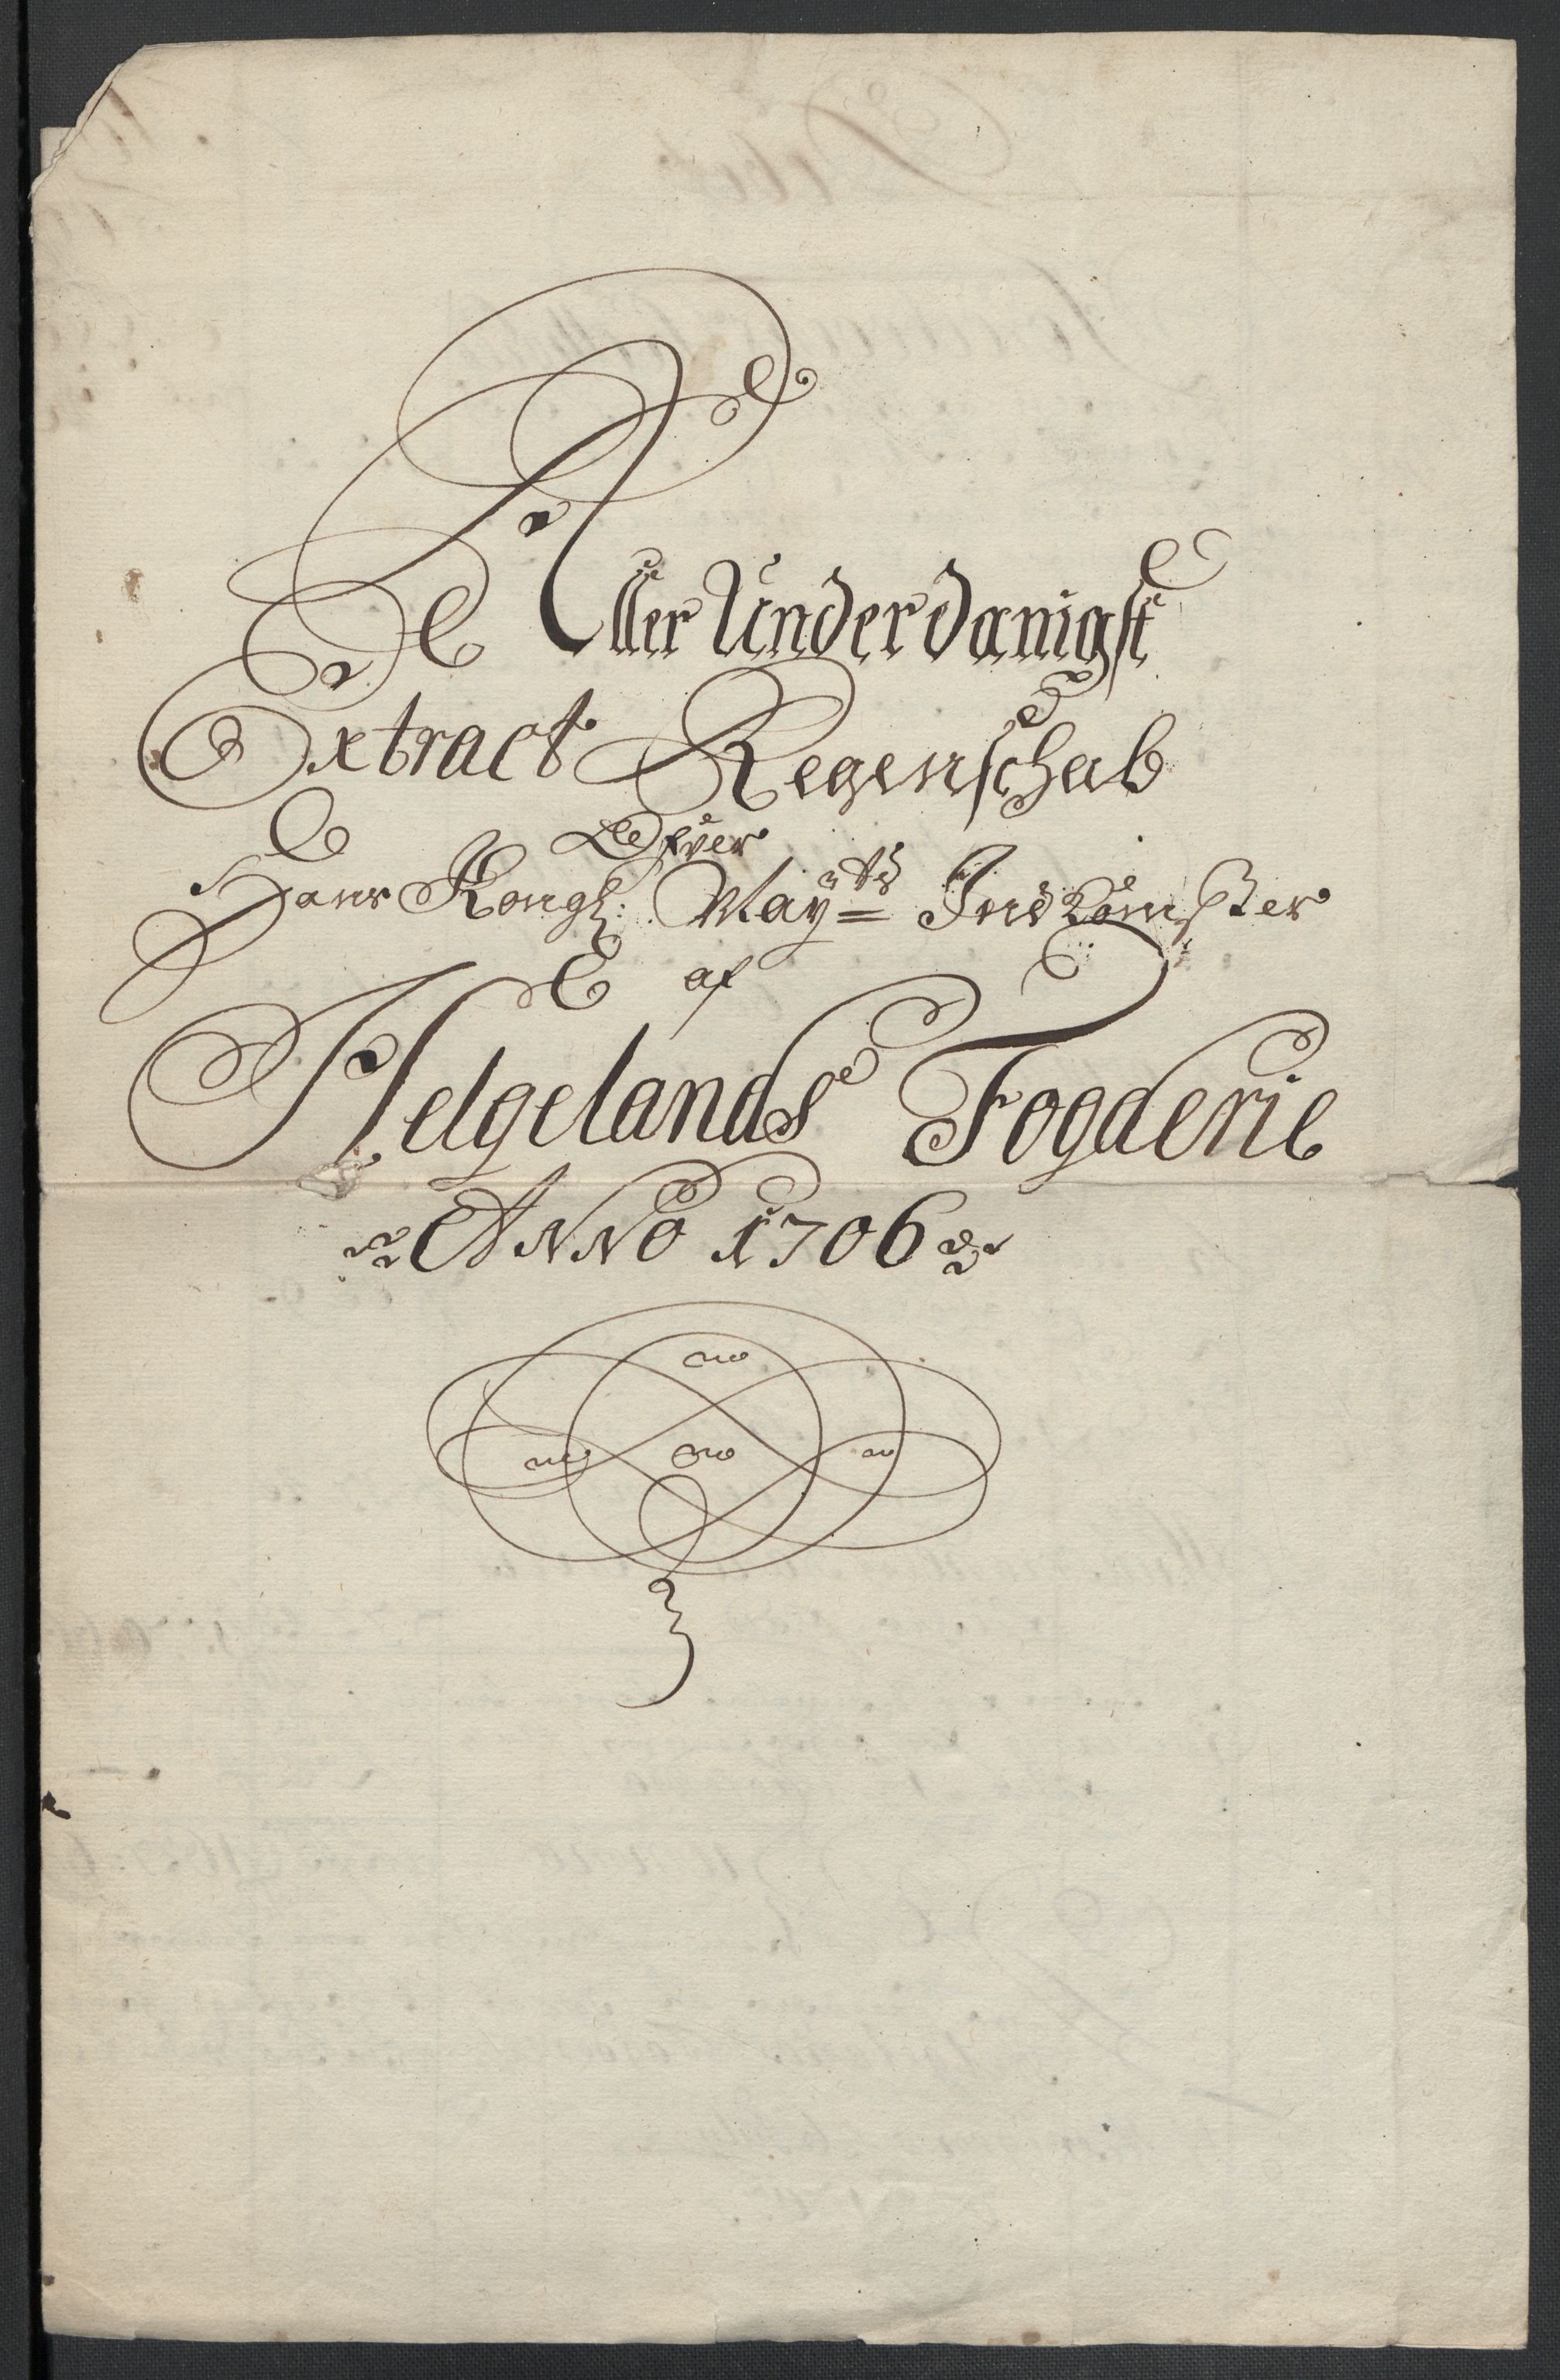 Aller Underdanigst
Extract Regenschab
Ofver
Hans Kongl: May^ts Indkomster
af
Helgelands Fogderie
Anno 1706